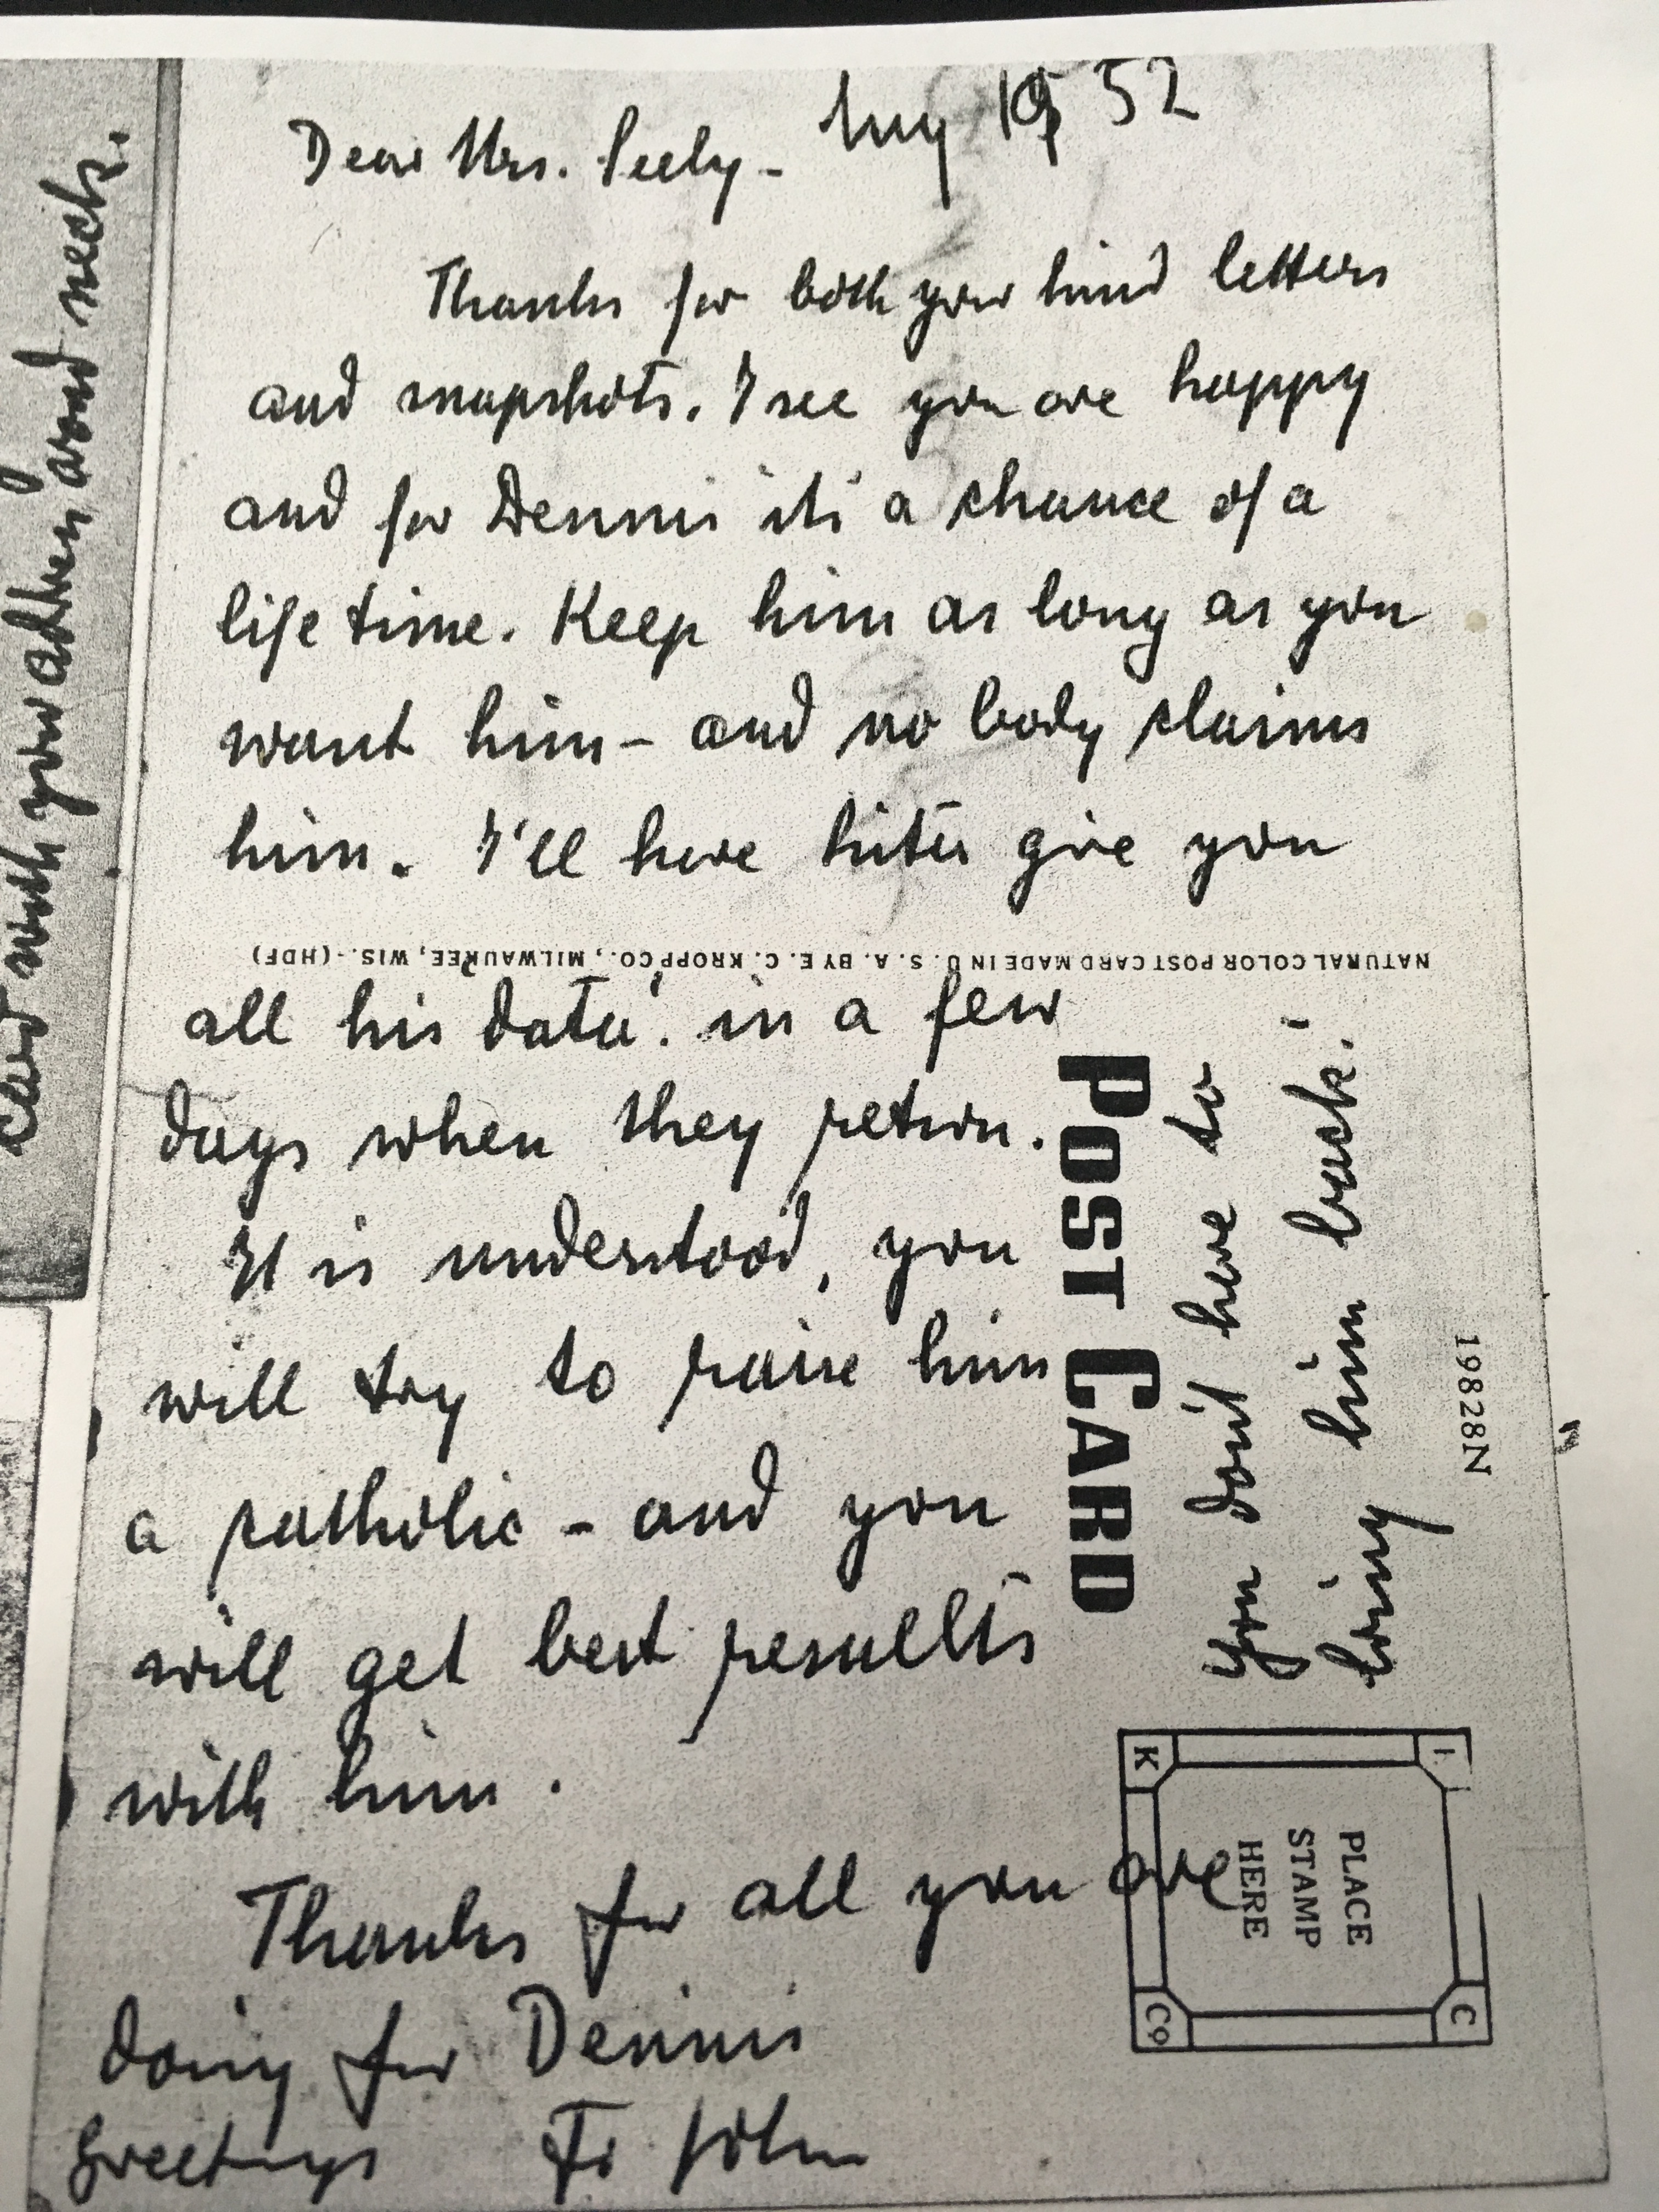 Dear Mrs. Seely - Aug 19 52
Thanks for both your kind letters
and snapshots. I see you are happy
and for Dennis its a chance of a
life time. Keep him as long as you
want him - and no body claims
him. I'll have sister give you
NATURAL COLOR POST CARD MADE IN U. S. A. BY E. C. KROPP CO., MILWAUKEE, WIS. - (HDF)
all his data. in a few
days when they return.
It is understood, you
will try to raise him
a catholic - and you
will get best results
with him.
Thanks for all you are
doing for Dennis
Greetings Fr John
You don't have to
bring him back!
POST CARD
19828N
PLACE
STAMP
HERE
K
C
Co
card with your address around neck.